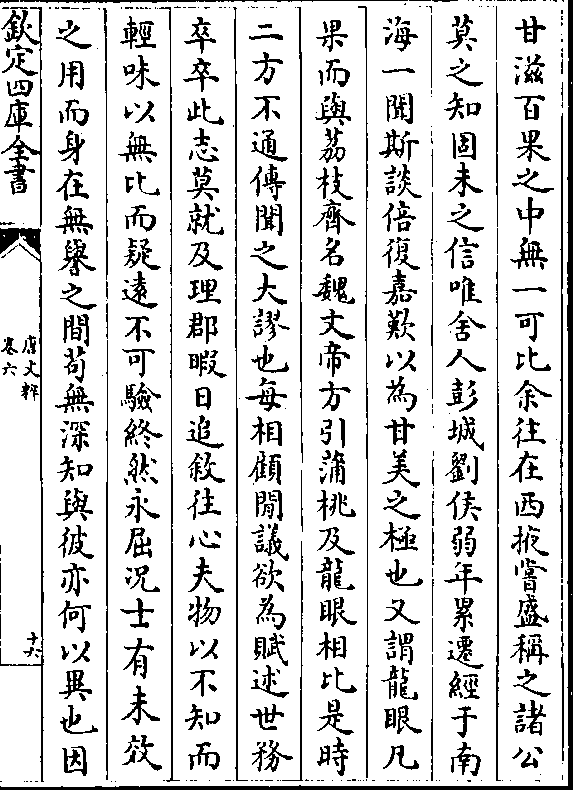 甘滋百果之中無一可比余往在西掖嘗盛稱之諸公
莫之知固未之信唯舍人彭城劉侯弱年累遷經于南
海一聞斯談倍復嘉歎以為甘美之極也又謂龍眼凡
果而與荔枝齊名魏文帝方引蒲桃及龍眼相比是時
二方不通傳聞之大謬也每相顧閒議欲為賦述世務
卒卒此志莫就及理郡暇日追敘往心夫物以不知而
輕味以無比而疑遠不可驗終然永屈况士有未效
之用而身在無譽之間苟無深知與彼亦何以異也因
欽定四庫全書
唐文粹
卷六
十六